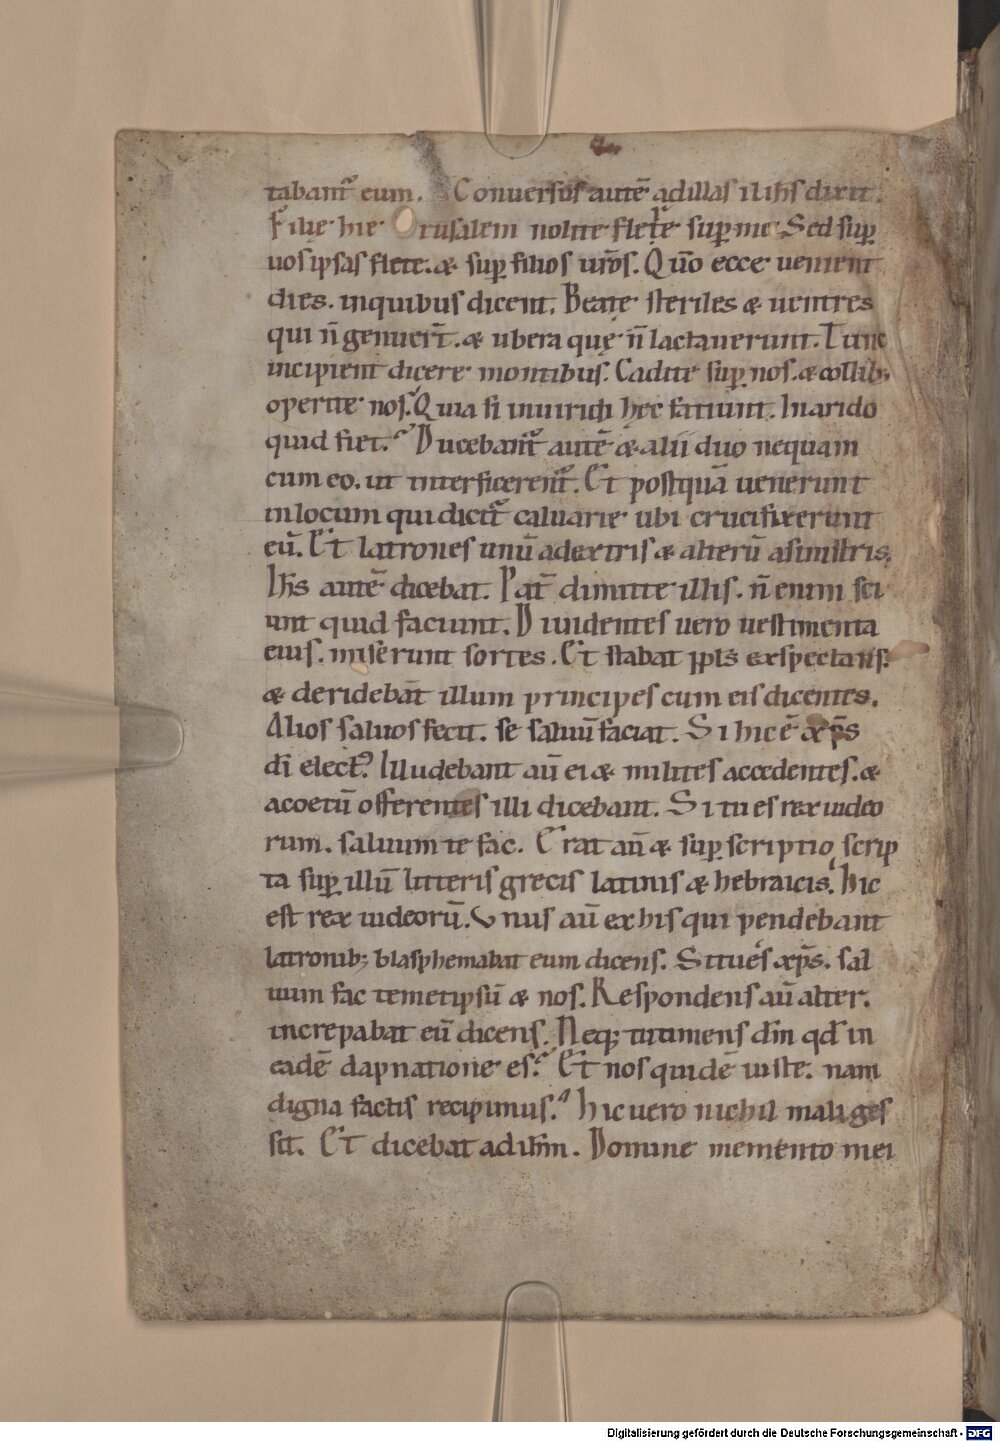 tabant᷑ eum. Conuersus autē ad illas ih̅s dixit.
Filię hierusalem nolite flere sup̱ me. Sed sup̱
uos ipsas flete. & sup̱ filios ur̅os. Qm̅o ecce uenient
dies. in quibus dicent. Beatę steriles & uentres
qui n̅ genuer̅t. & ubera quę n̅ lactauerunt. Tunc
incipient dicere montibus. Cadite sup̱ nos. & collib;
operite nos. Quia si in uiridi hęc faciunt. In arido
quid fiet? Ducebant᷑ autē & alii duo nequam
cum eo. ut interficerent᷑. Et postquā uenerunt
in locum qui dicit᷑ caluarie ubi crucifixerunt
eū. Et latrones unū a dextris & alterū a sinistris.
Ih̅s autē dicebat. Pat̅ dimitte illis. n̅ enim sci
unt quid faciunt. Diuidentes uero uestimenta
eius. miserunt sortes. Et stabat pp̅ls exspectans.
& deridebāt illum principes cum eis dicentes.
Alios saluos fecit. se saluū faciat. Si hic ē xp̅s
di̅ elect᷒. Illudebant aū ei & milites accedentes. &
acoetū offerentes illi dicebant. Si tu es rex iudeo
rum. saluum te fac. Erat aū & sup̱scriptio scrip
ta sup̱ illū litteris grecis latinis & hebraicis. hic
est rex iudeorū. Vnus aū ex his qui pendebant
latronib; blasphemabat eum dicens. Si tu es xp̅s. sal
uum fac temetipsū & nos. Respondens aū alter.
increpabat eū dicens. Neq; tu times dm̅ qd̅ in
eadē dapnatione es? Et nos quidē iuste. nam
digna factis recipimus. hic uero nichil mali ges
sit. Et dicebat ad ih̅m. Domine memento mei
Digitalisierung gefördert durch die Deutsche Forschungsgemeinschaft - DFG